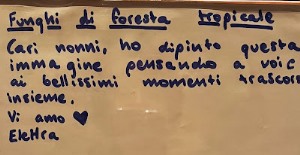 Funghi di foresta tropicale
Cari nonni, ho dipinto questa
immagine pensando a voi e
ai bellissimi momenti trascor
insieme.
Vi amo ♥
Elettra